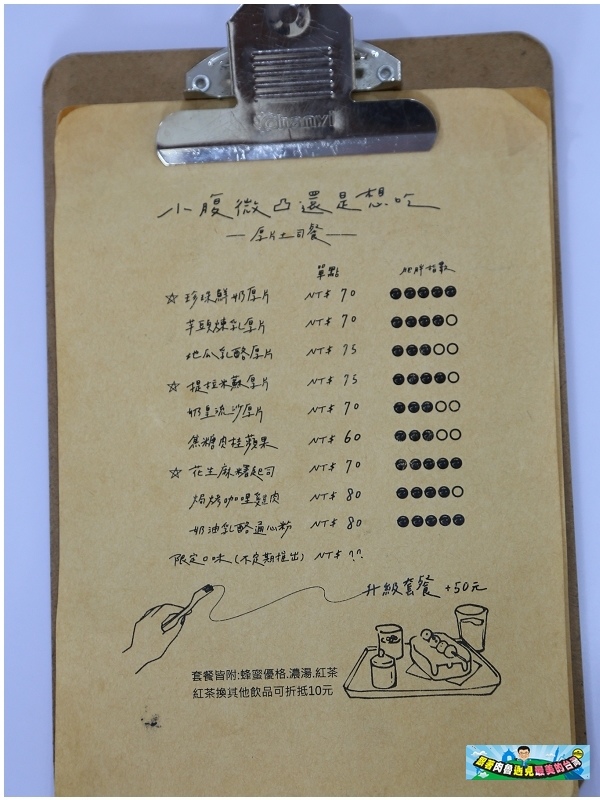 小腹微凸還是想吃
—厚片土司餐—
單點 肥胖指數
☆ 珍珠鮮奶厚片 NT$ 70 ●●●●●
芋頭煉乳厚片 NT$ 70 ●●●●○
地瓜乳酪厚片 NT$ 75 ●●●○○
☆ 提拉米蘇厚片 NT$ 75 ●●●●○
奶皇流沙厚片 NT$ 70 ●●●○○
焦糖肉桂蘋果 NT$ 60 ●●●○○
☆ 花生麻糬起司 NT$ 70 ●●●●●
焗烤咖哩雞肉 NT$ 80 ●●●●○
奶油乳酪通心粉 NT$ 80 ●●●●●
限定口味(不定期推出) NT$ ??
升級套餐 +50元
套餐皆附:蜂蜜優格.濃湯.紅茶
紅茶換其他飲品可折抵10元
跟著肉魯遇見最美的台灣